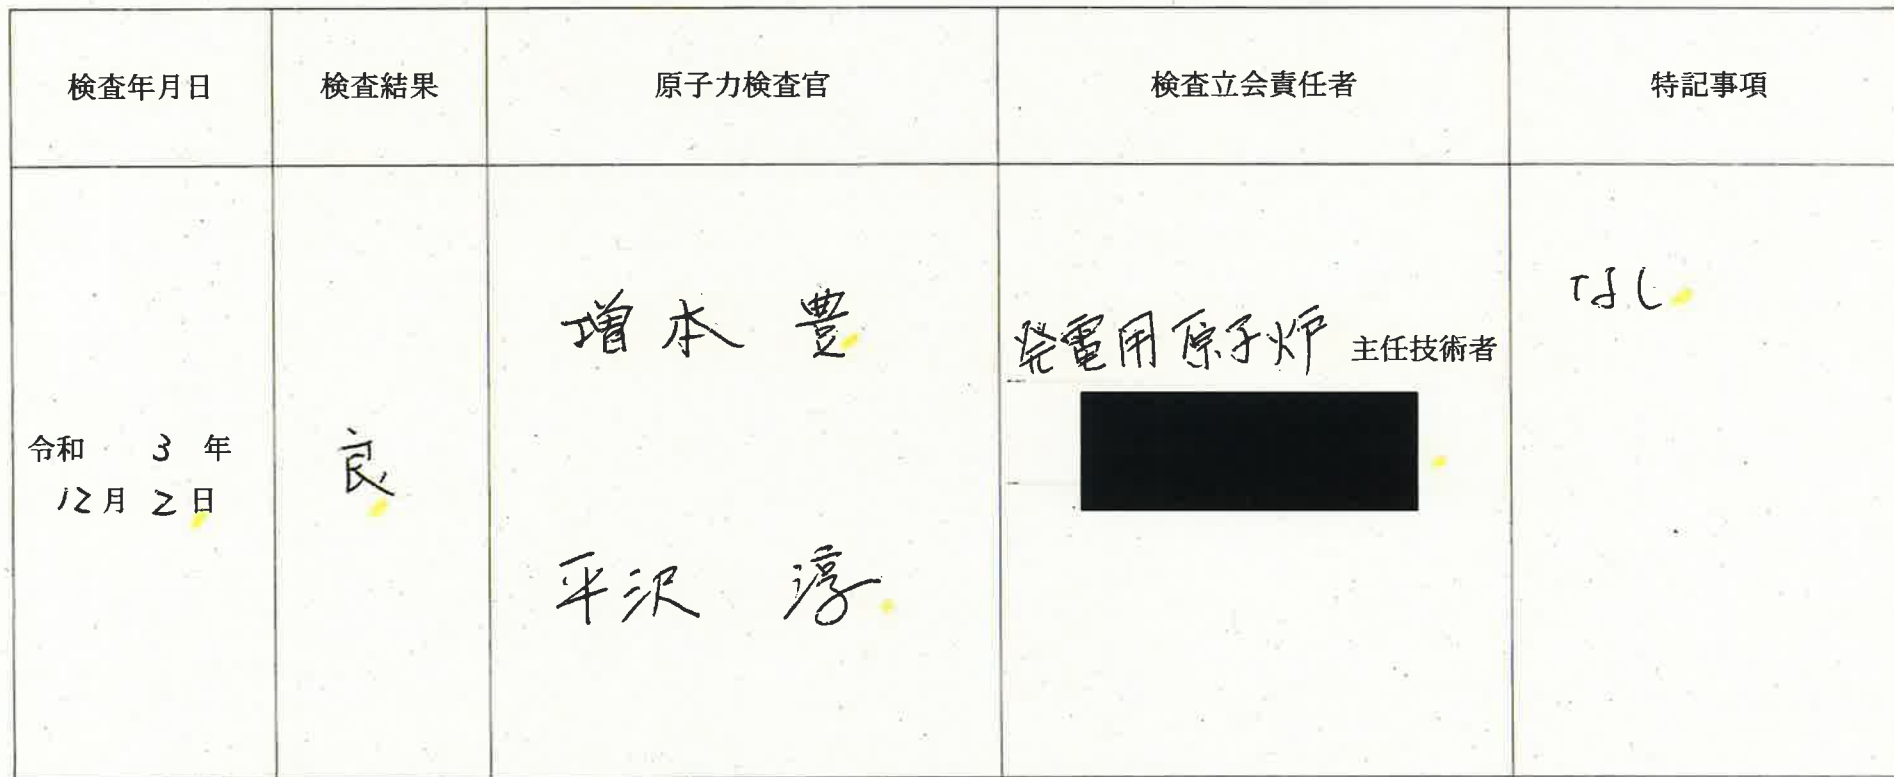 検査年月日
検査結果
原子力検査官
検査立会責任者
特記事項
令和 3 年
12月 2日
良
増本 豊
平沢 淳
発電用原子炉 主任技術者
なし